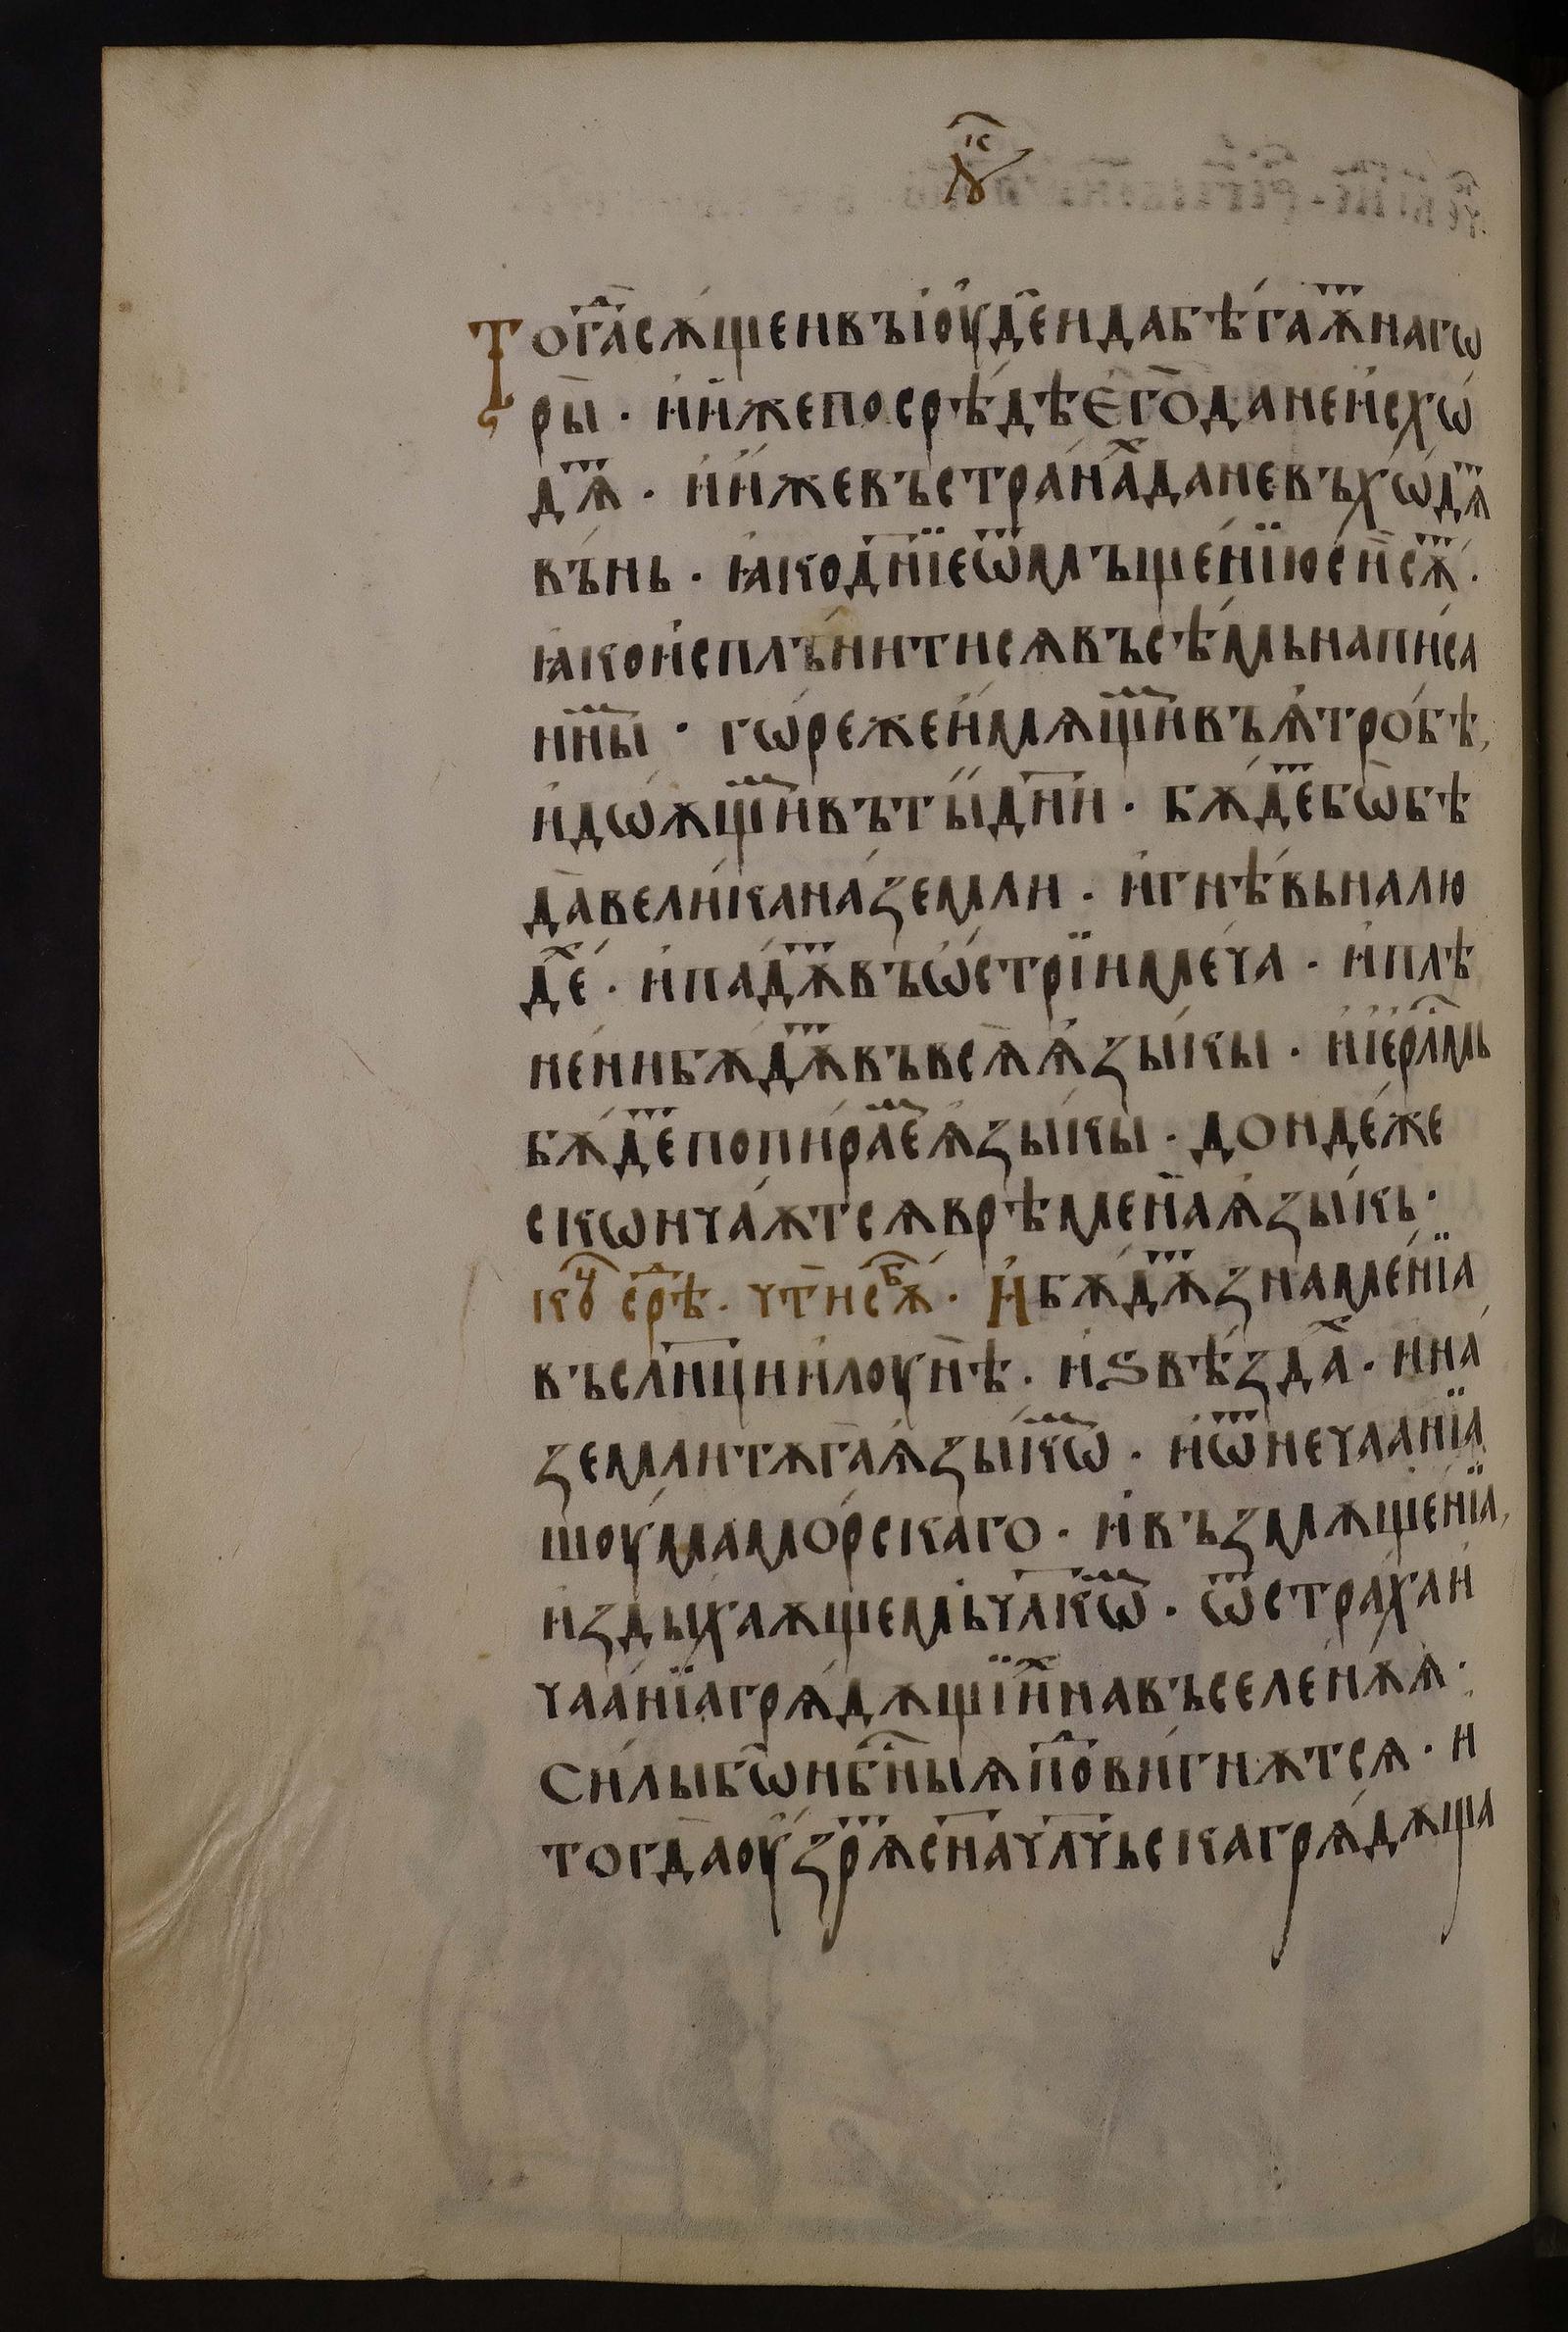 лⷦ҇ꙋ
Тогда̑ сѫ́щен въ їоуде́и да бѣ́гаѫⷮ на гѡ
ры̀ · и҆ и҆́же посрѣ́дѣ є҆го̀ да не и҆схѡ́
дѧⷮ · и҆ и҆́же въ страна́ⷯ да не въхѡ́дѧⷮ
въ́нь · ꙗ҆ко дн҃їе ѿмъще́нїю сѐ сѫⷮ ·
ꙗ҆ко и҆спль́нитисѧ въсѣ́мь напи́са
нныⷨ · гѡ́ре же и҆мѧ́щїиⷨ въ ѫ҆тро́бѣ,
и҆ доѫщїиⷨ въ ты́ѧ дн҃и · бѫ́деⷮ бѡ бѣ
да̀ вели́ка на́ земли · и҆ гнѣ́вь на лю
де́ⷯ · и҆ па́дѫⷮ въ ѡ҆́стрїи ме́ча · и҆ плѣ
не́ни бѫ́дѫⷮ въ всѧ̀ ѧ҆зы́кы · и҆ і҆ерⷭ҇лмь
бѫ́деⷮ попи́раеⷨ ѧ҆зы́кы · донде́же
скѡнча́ѫтсѧ врѣмена̀ ѧ҆зы́кь ·
коⷰ҇ срѣⷣ · чт҃и сѫⷠ · И҆ бѫ́дѫⷮ знаме́нїа
въ сл҃нци и҆ лоунѣ̀ · и҆ ѕвѣзда́ⷯ · и҆ на́
земли тѫга̀ ѧ҆зы́кѡⷨ · и҆ ѿ неча́анїа
шоу́ма мо́рскаго · и҆ възмѫще́нїа,
и҆здыхаѫщемь чл҃кѡⷨ · ѿ стра́ха и҆
чаа́нїа грѧ́дѫщїиⷯ на въселе́нѫѧ ·
Си́лы бѡ нбⷭ҇ныѧ поⷣви́гнѫтсѧ · и҆
тогда̀ оу҆́зрѧⷮ сн҃а чл҃чьска грѧ́дѫща